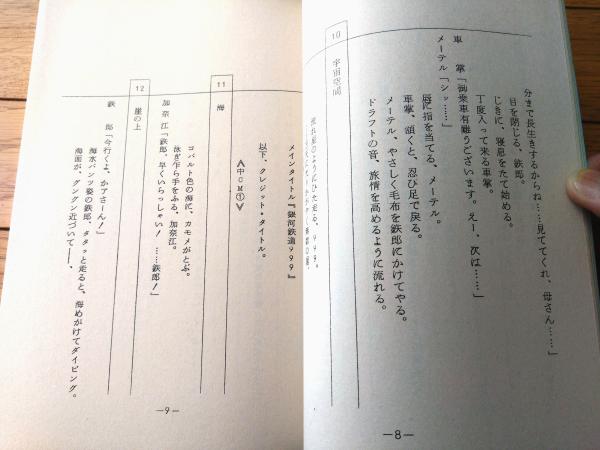 分まで長生きするからね……見ててくれ、母さん……」
目を閉じる、鉄郎。
じきに、寝息をたて始める。
丁度入って来る車掌。
車　掌「御乗車有難うございます。えー、次は……」
メーテル「シッ……」
唇に指を当てる、メーテル。
車掌、頷くと、忍び足で戻る。
メーテル、やさしく毛布を鉄郎にかけてやる。
ドラフトの音、旅情を高めるように流れる。
10　宇宙空間
流れ星のようにひた走る、999。
—8—
メインタイトル『銀河鉄道999』
以下、クレジット・タイトル。
《中CM①》
11　海
コバルト色の海に、カモメがとぶ。
泳ぎ乍ら手をふる、加奈江。
加奈江「鉄郎、早くいらっしゃい！……鉄郎！」
12　崖の上
鉄　郎「今行くよ、かアさーん！」
海水パンツ姿の鉄郎、タタッと走ると、海めがけてダイビング。
海面が、グングン近づいて——、
—9—